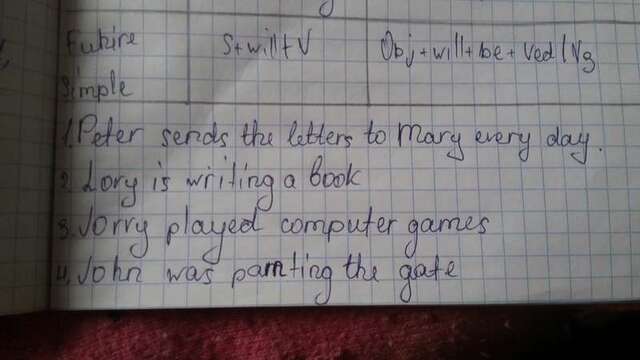 Future S+will+V Obj+will+be+Ved/V3
Simple
1. Peter sends the letters to Mary every day.
2. Lory is writing a book
3. Jorry played computer games
4. John was painting the gate